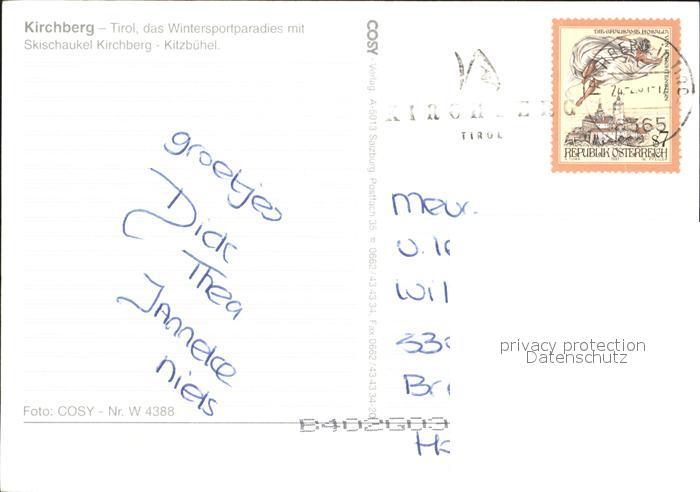 Kirchberg – Tirol, das Wintersportparadies mit
Skischaukel Kirchberg - Kitzbühel.
groetjes
Dick
Thea
Janneke
niels
Foto: COSY - Nr. W 4388
COSY - Verlag, A-5013 Salzburg, Postfach 35, ☏ 0662/43 43 34, Fax 0662/43 43 34-20
KIRCHBERG
TIROL
DIE GRAUSAME ROSALIA
6365
S7
REPUBLIK ÖSTERREICH
Wil
Br
privacy protection
Datenschutz